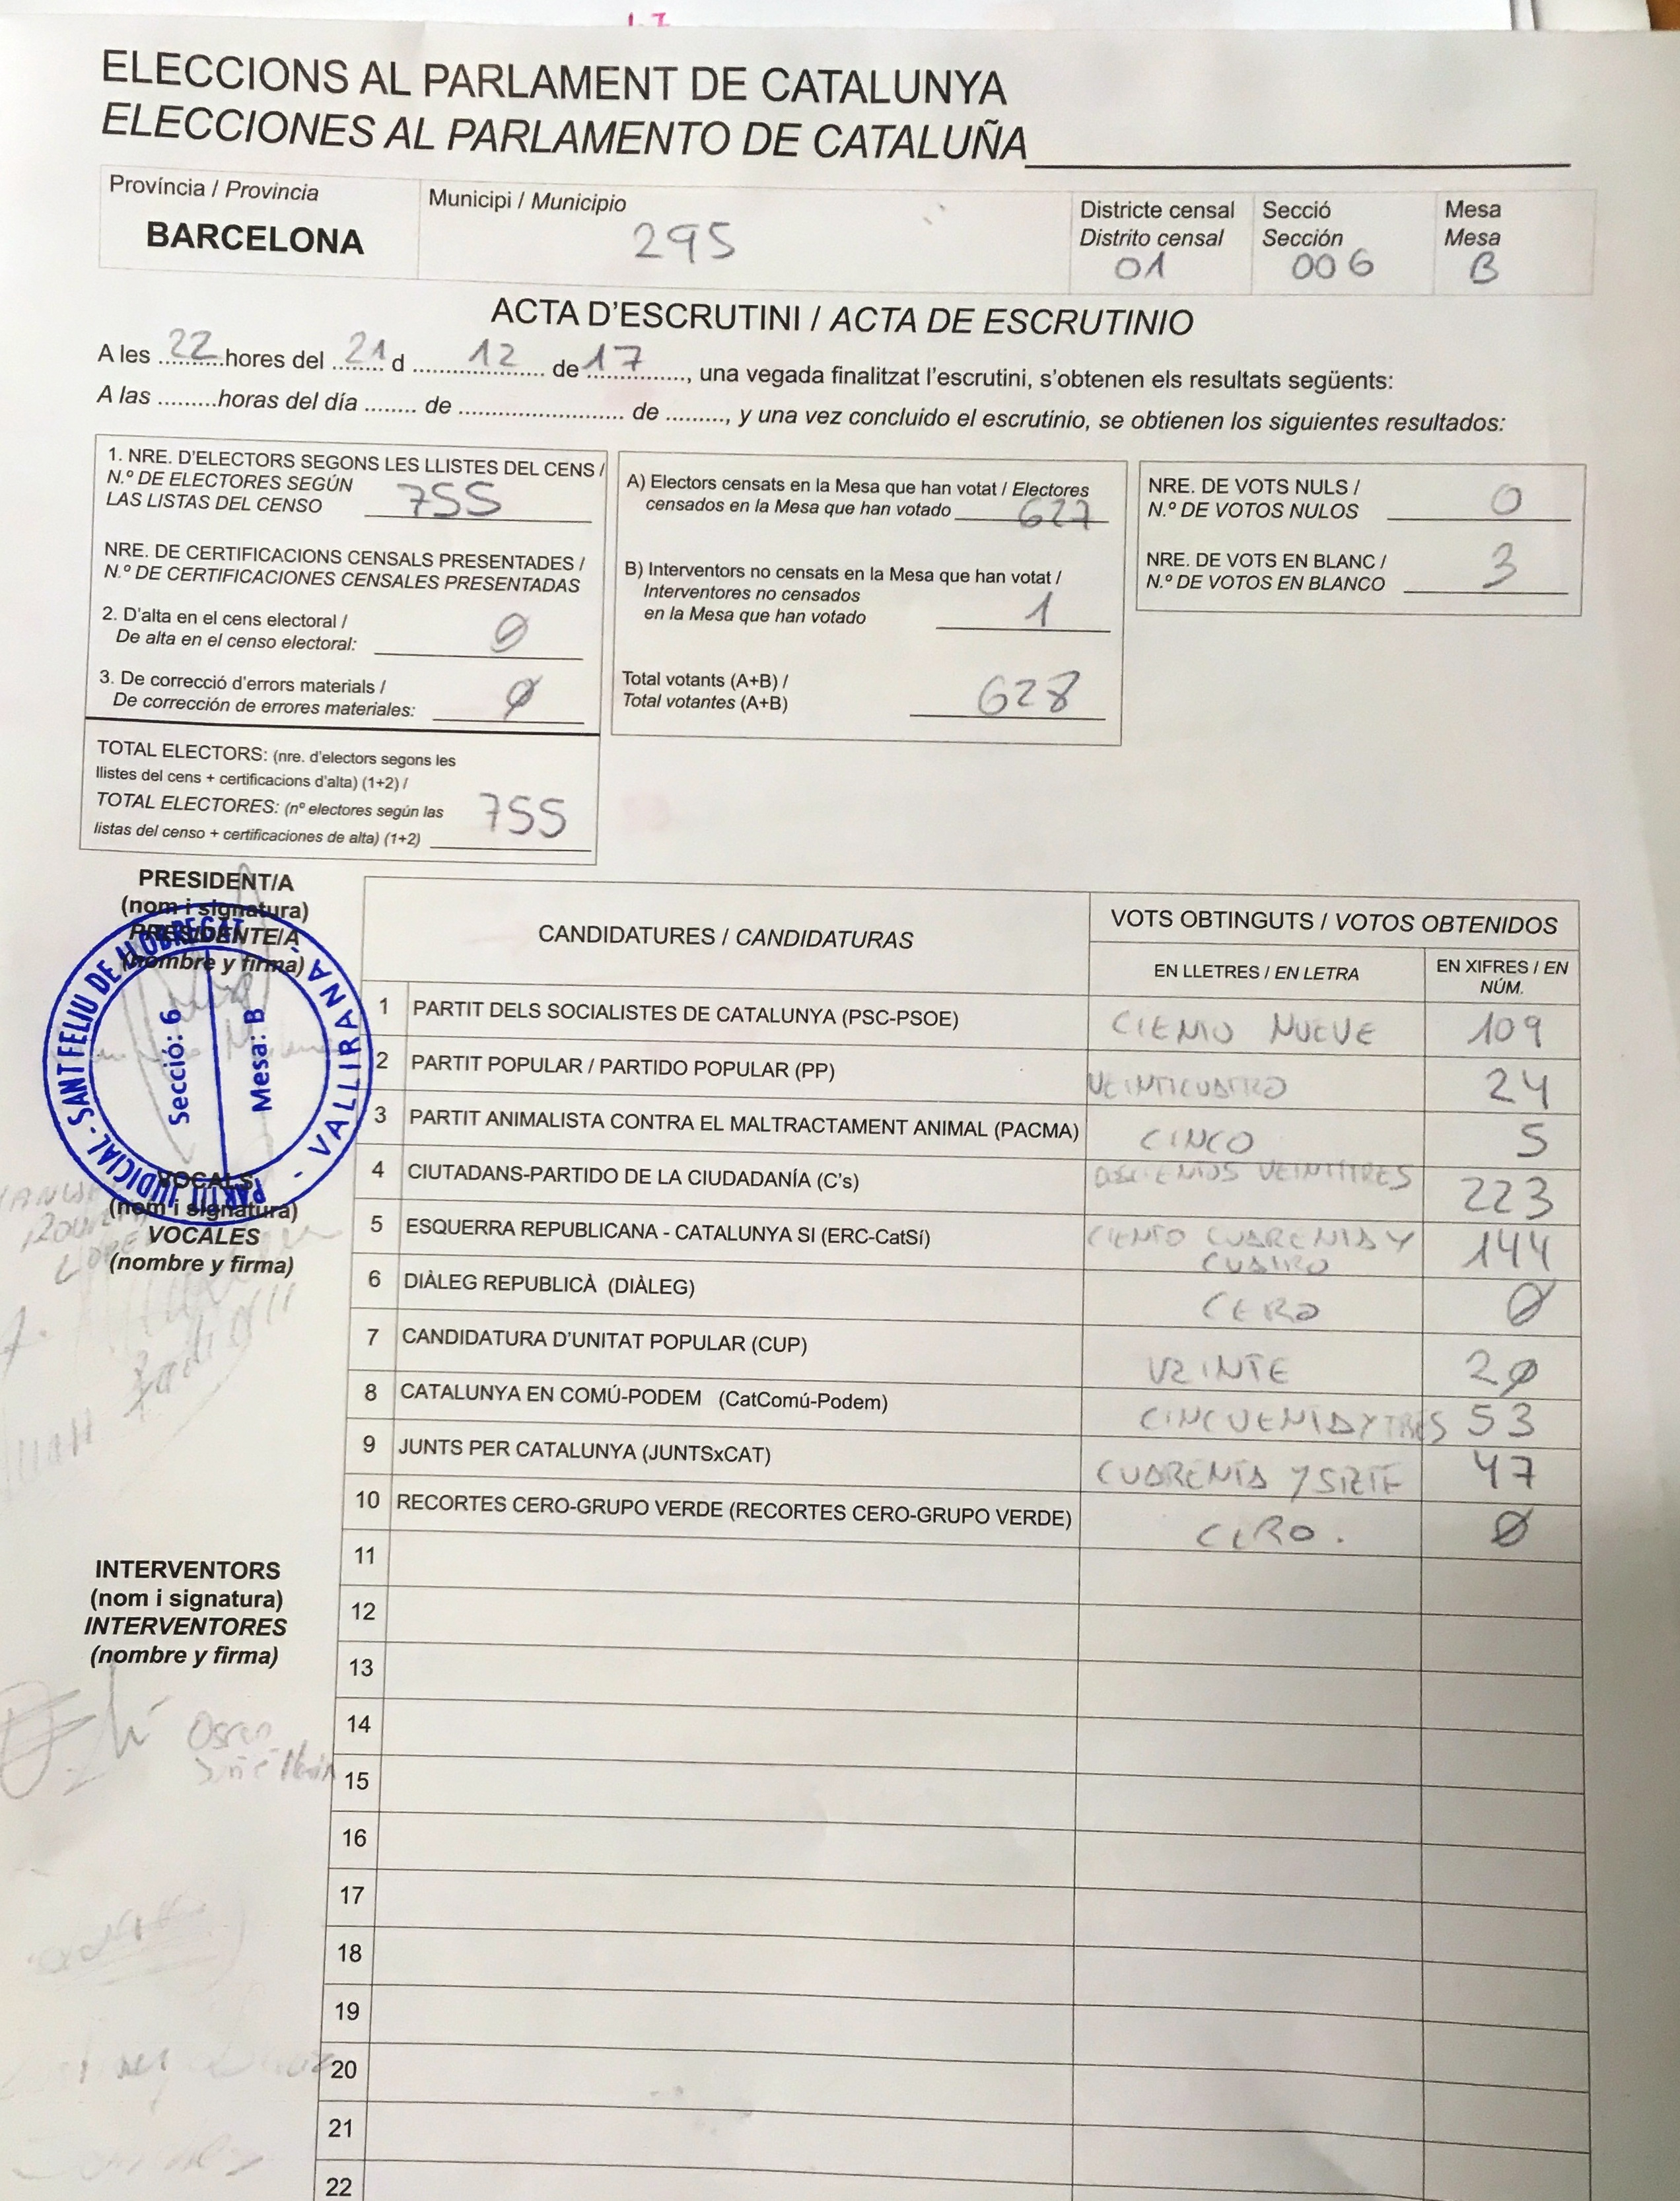 ELECCIONS AL PARLAMENT DE CATALUNYA
ELECCIONES AL PARLAMENTO DE CATALUÑA
Província / Provincia
BARCELONA
Municipi / Municipio
295
Districte censal
Distrito censal
01
Secció
Sección
006
Mesa
Mesa
B
ACTA D'ESCRUTINI / ACTA DE ESCRUTINIO
A les 22 hores del 21 d 12 de 17, una vegada finalitzat l'escrutini, s'obtenen els resultats següents:
A las .........horas del día ........ de ........................ de ........., y una vez concluido el escrutinio, se obtienen los siguientes resultados:
1. NRE. D'ELECTORS SEGONS LES LLISTES DEL CENS /
N.º DE ELECTORES SEGÚN
LAS LISTAS DEL CENSO 755
NRE. DE CERTIFICACIONS CENSALS PRESENTADES /
N.º DE CERTIFICACIONES CENSALES PRESENTADAS
2. D'alta en el cens electoral /
De alta en el censo electoral: 0
3. De correcció d'errors materials /
De corrección de errores materiales: 0
TOTAL ELECTORS: (nre. d'electors segons les
llistes del cens + certificacions d'alta) (1+2) /
TOTAL ELECTORES: (nº electores según las
listas del censo + certificaciones de alta) (1+2) 755
A) Electors censats en la Mesa que han votat / Electores
censados en la Mesa que han votado 627
B) Interventors no censats en la Mesa que han votat /
Interventores no censados
en la Mesa que han votado 1
Total votants (A+B) /
Total votantes (A+B) 628
NRE. DE VOTS NULS /
N.º DE VOTOS NULOS 0
NRE. DE VOTS EN BLANC /
N.º DE VOTOS EN BLANCO 3
PRESIDENT/A
(nom i signatura)
PRESIDENTE/A
(nombre y firma)
PARTIT JUDICIAL - SANT FELIU DE LLOBREGAT - VALLIRANA
Secció: 6
Mesa: B
VOCALS
(nom i signatura)
VOCALES
(nombre y firma)
INTERVENTORS
(nom i signatura)
INTERVENTORES
(nombre y firma)
Oscar
CANDIDATURES / CANDIDATURAS
VOTS OBTINGUTS / VOTOS OBTENIDOS
EN LLETRES / EN LETRA
EN XIFRES / EN
NÚM.
1 PARTIT DELS SOCIALISTES DE CATALUNYA (PSC-PSOE) CIENTO NUEVE 109
2 PARTIT POPULAR / PARTIDO POPULAR (PP) VEINTICUATRO 24
3 PARTIT ANIMALISTA CONTRA EL MALTRACTAMENT ANIMAL (PACMA) CINCO 5
4 CIUTADANS-PARTIDO DE LA CIUDADANÍA (C's) DOSCIENTOS VEINTITRES 223
5 ESQUERRA REPUBLICANA - CATALUNYA SI (ERC-CatSí) CIENTO CUARENTA Y 144
CUATRO
6 DIÀLEG REPUBLICÀ (DIÀLEG) CERO 0
7 CANDIDATURA D'UNITAT POPULAR (CUP) VEINTE 20
8 CATALUNYA EN COMÚ-PODEM (CatComú-Podem) CINCUENTA Y TRES 53
9 JUNTS PER CATALUNYA (JUNTSxCAT) CUARENTA Y SIETE 47
10 RECORTES CERO-GRUPO VERDE (RECORTES CERO-GRUPO VERDE) CERO. 0
11
12
13
14
15
16
17
18
19
20
21
22